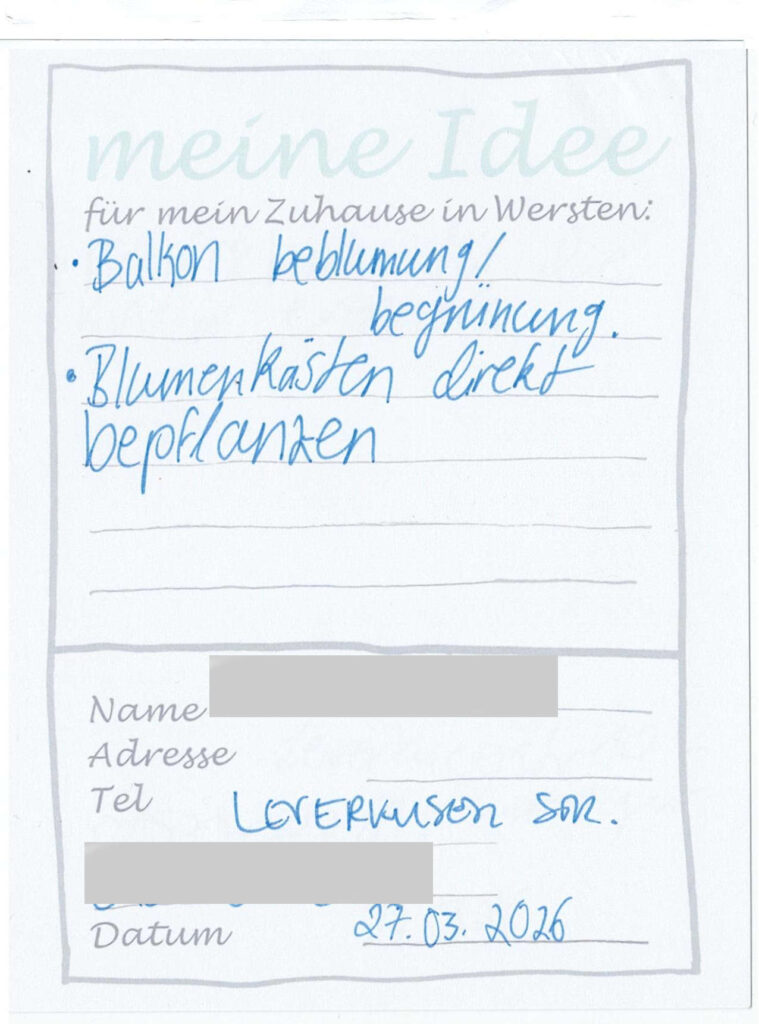 meine Idee
für mein Zuhause in Wersten:
• Balkon beblumung/
begrünung.
• Blumenkästen direkt
bepflanzen
Name
Adresse
Tel
Leverkusen Str.
Datum 27.03.2026